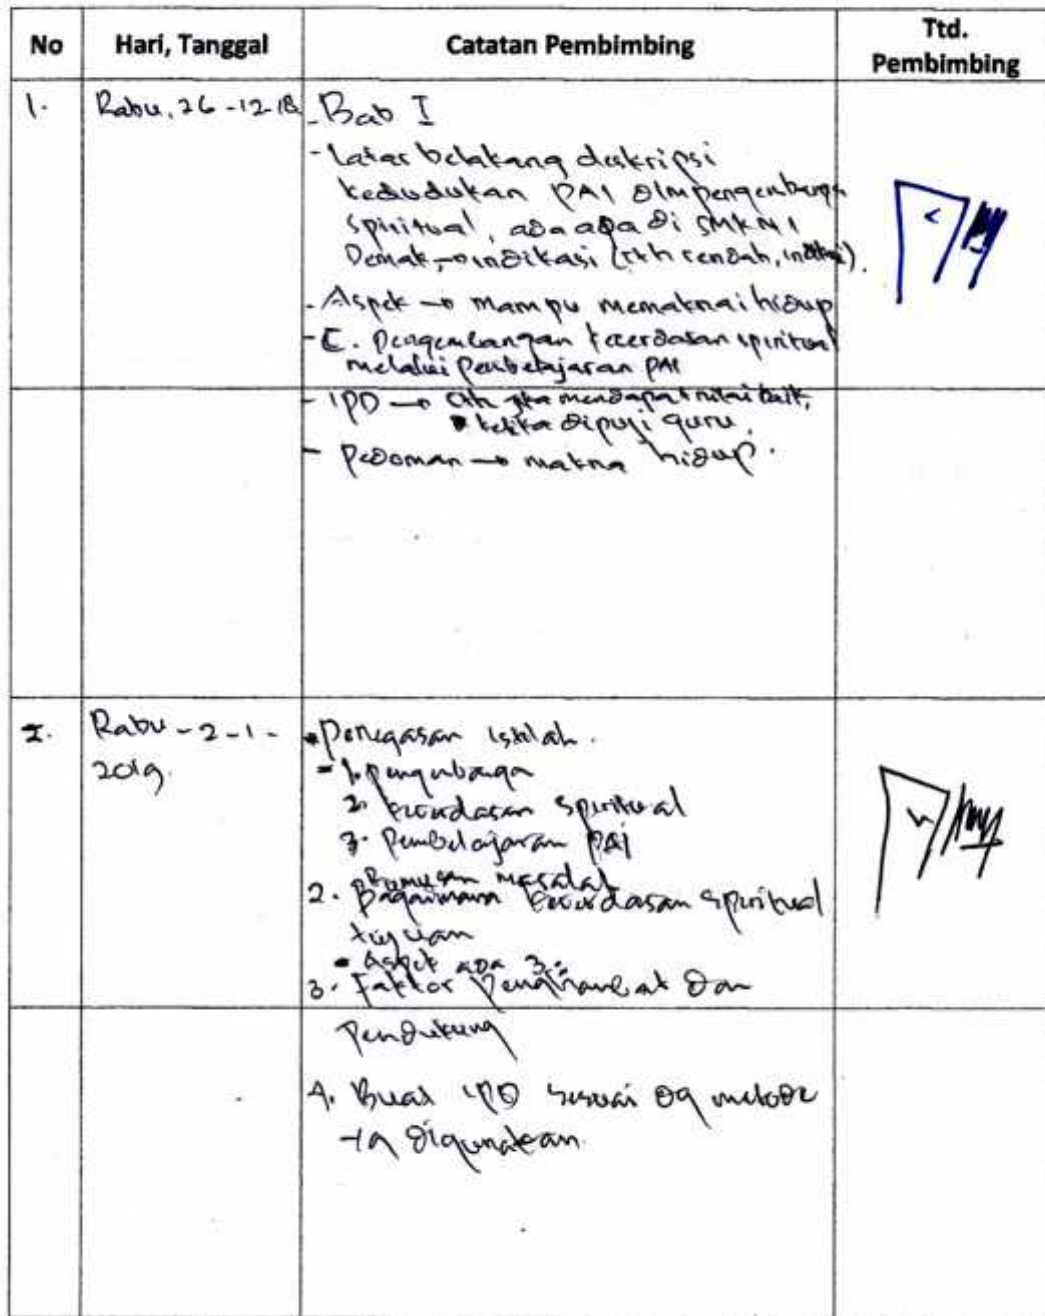 No Hari, Tanggal Catatan Pembimbing Ttd. Pembimbing
1. Rabu, 26-12-18 - Bab I
- latar belakang deskripsi
kedudukan PAI dlm pengembanga
spiritual, ada apa di SMKN 1
Demak, → indikasi (cth rendah,
- Aspek → mampu memaknai hidup
- E. Pengembangan kecerdasan spiritual
melalui pembelajaran PAI
- IPD → cth jika mendapat nilai baik,
ketika dipuji guru.
- Pedoman → makna hidup.
2. Rabu - 2 - 1 - 2019. Penegasan istilah.
- 1. pengembanga
2. kecerdasan spiritual
3. Pembelajaran PAI
Rumusan masalah
2. Bagaimana kecerdasan spiritual
tujuan
- Aspek ada 3:
3. Faktor Penghambat dan
Pendukung
4. Buat IPD sesuai dg metode
yg digunakan.